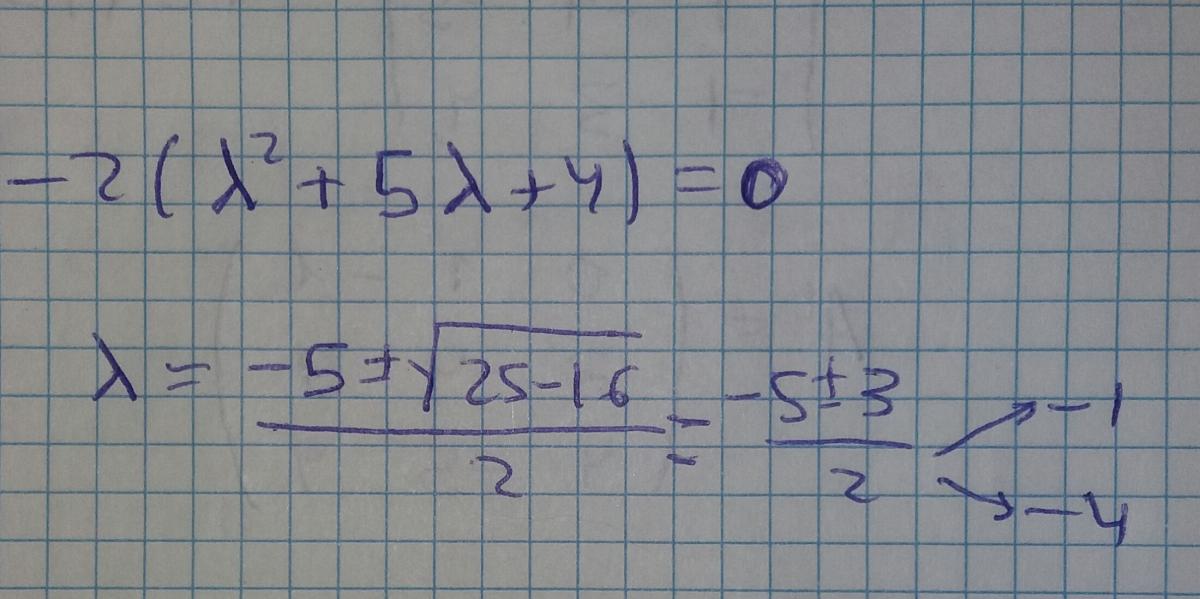 -2(λ² + 5λ + 4) = 0
λ = (-5 ± √(25-16))/2 = (-5 ± 3)/2 ↗ -1 ↘ -4